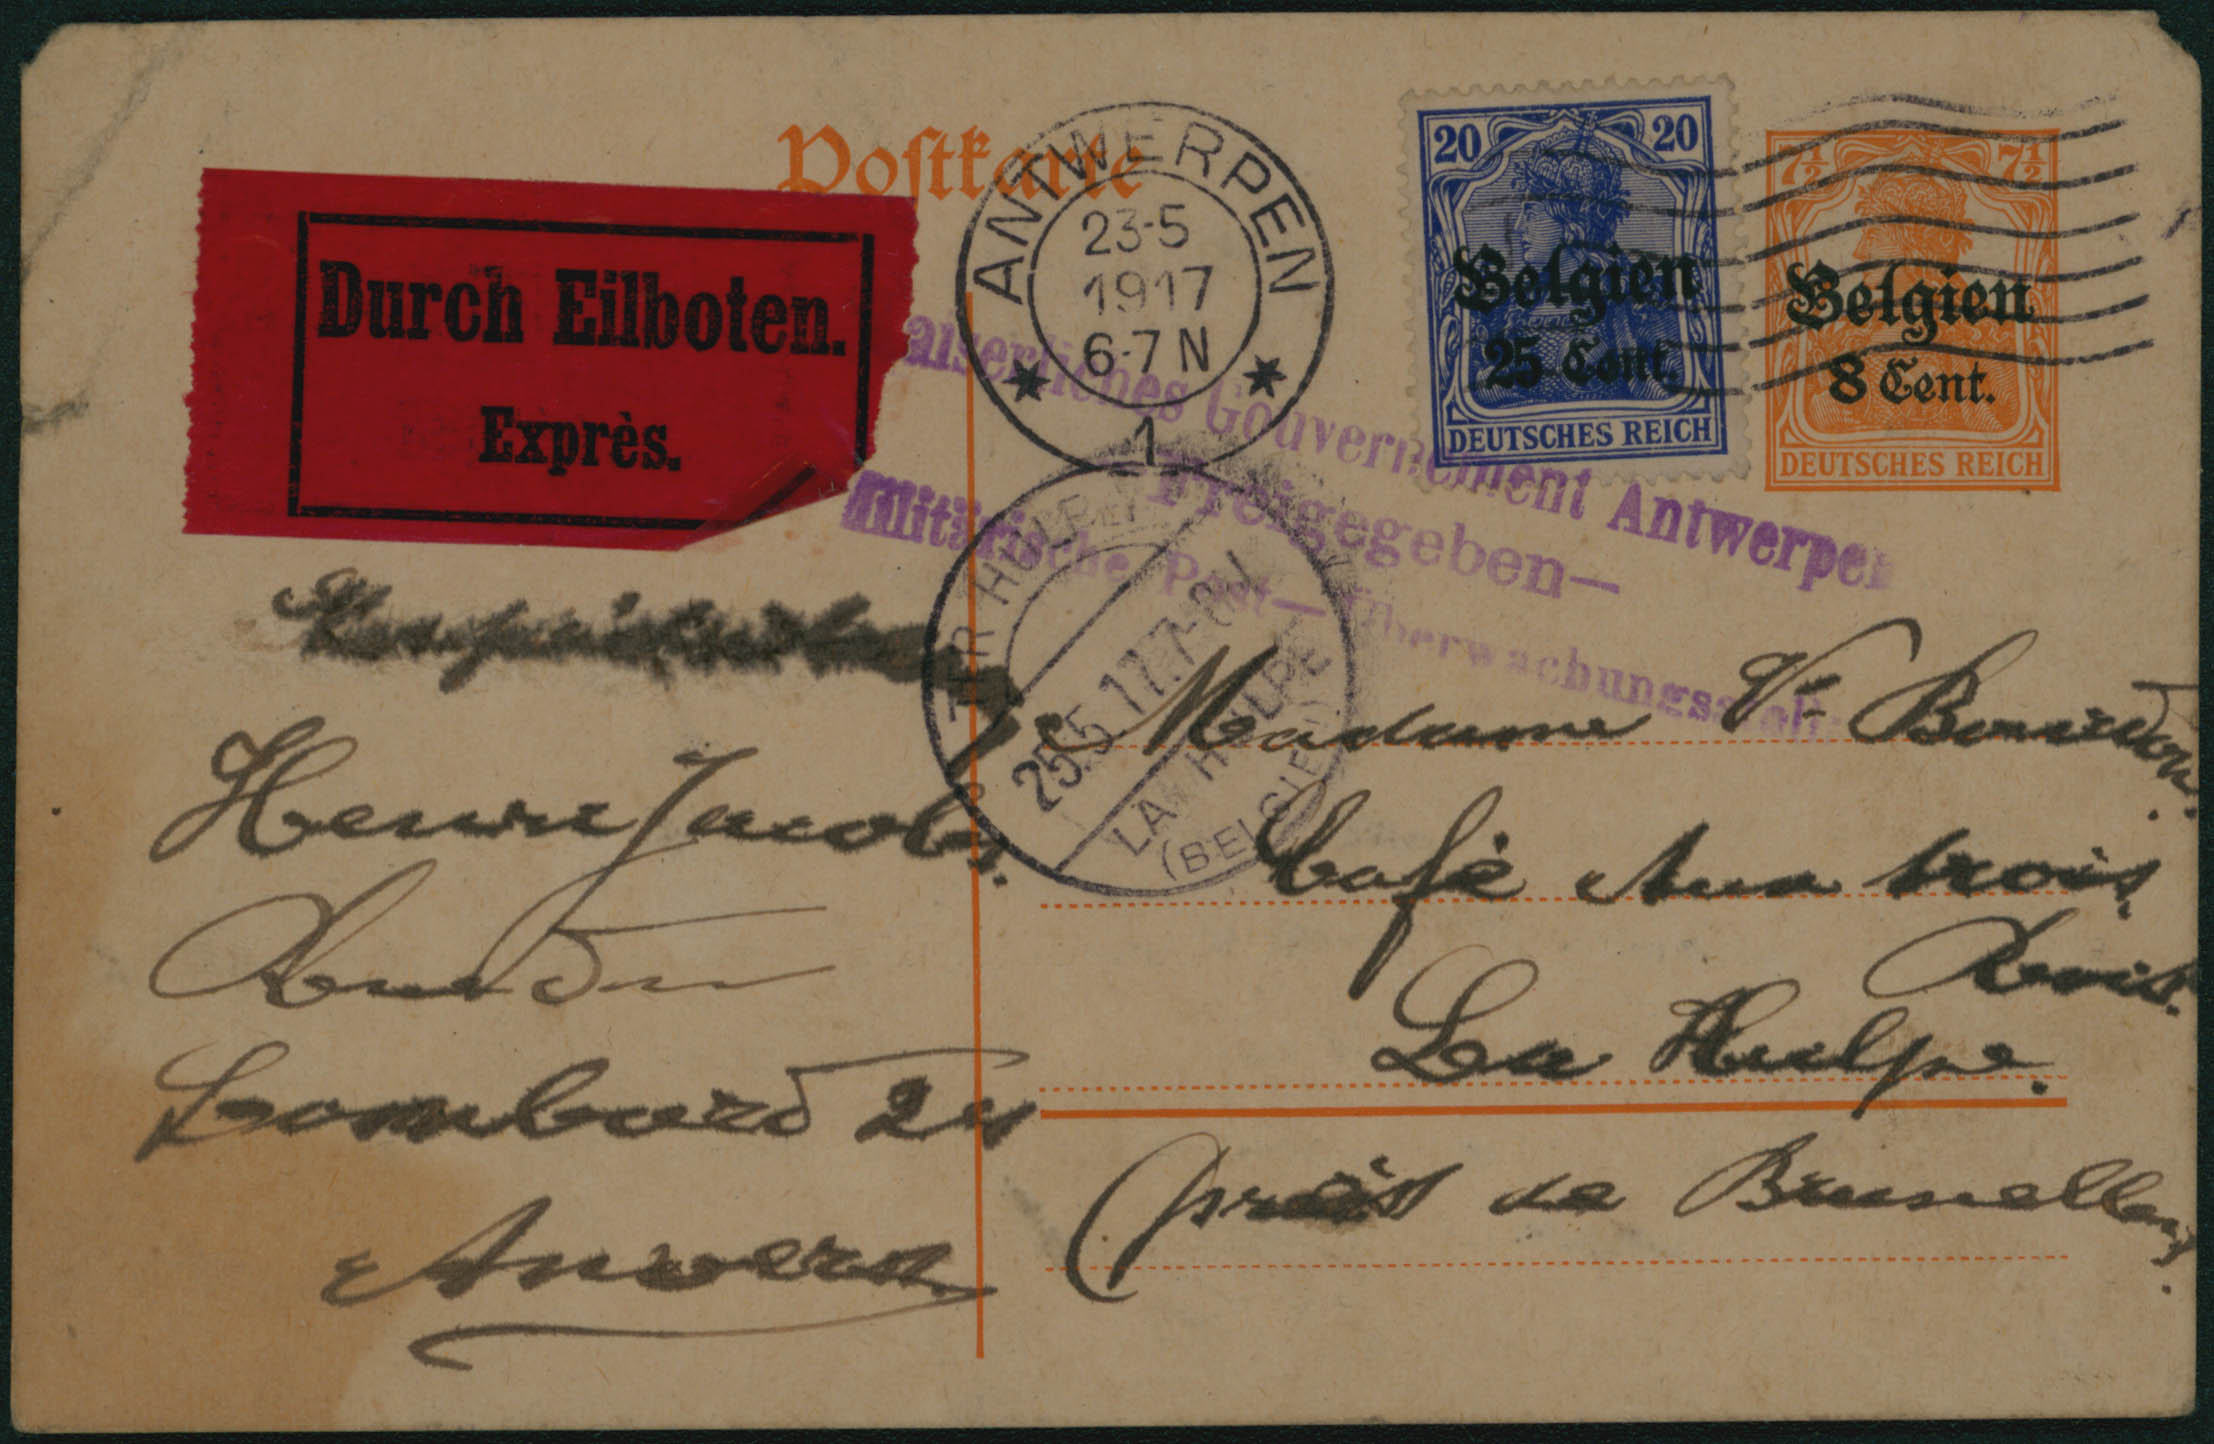 Postkarte
Durch Eilboten.
Exprès.
ANTWERPEN
23-5
1917
6-7 N
* 1 *
20 20
Belgien
25 Cent.
DEUTSCHES REICH
7½ 7½
Belgien
8 Cent.
DEUTSCHES REICH
aiserliches Gouvernement Antwerpen
Freigegeben—
Militärische Post—Überwachungsstelle
TER HULPEN
25.5.17.7-8N
LA HULPE
(BELGIEN)
Henri Jacobs.
Lombard
Anvers
Madame Ve
Café Aux trois
Rois.
La Hulpe.
près de Bruxelles.